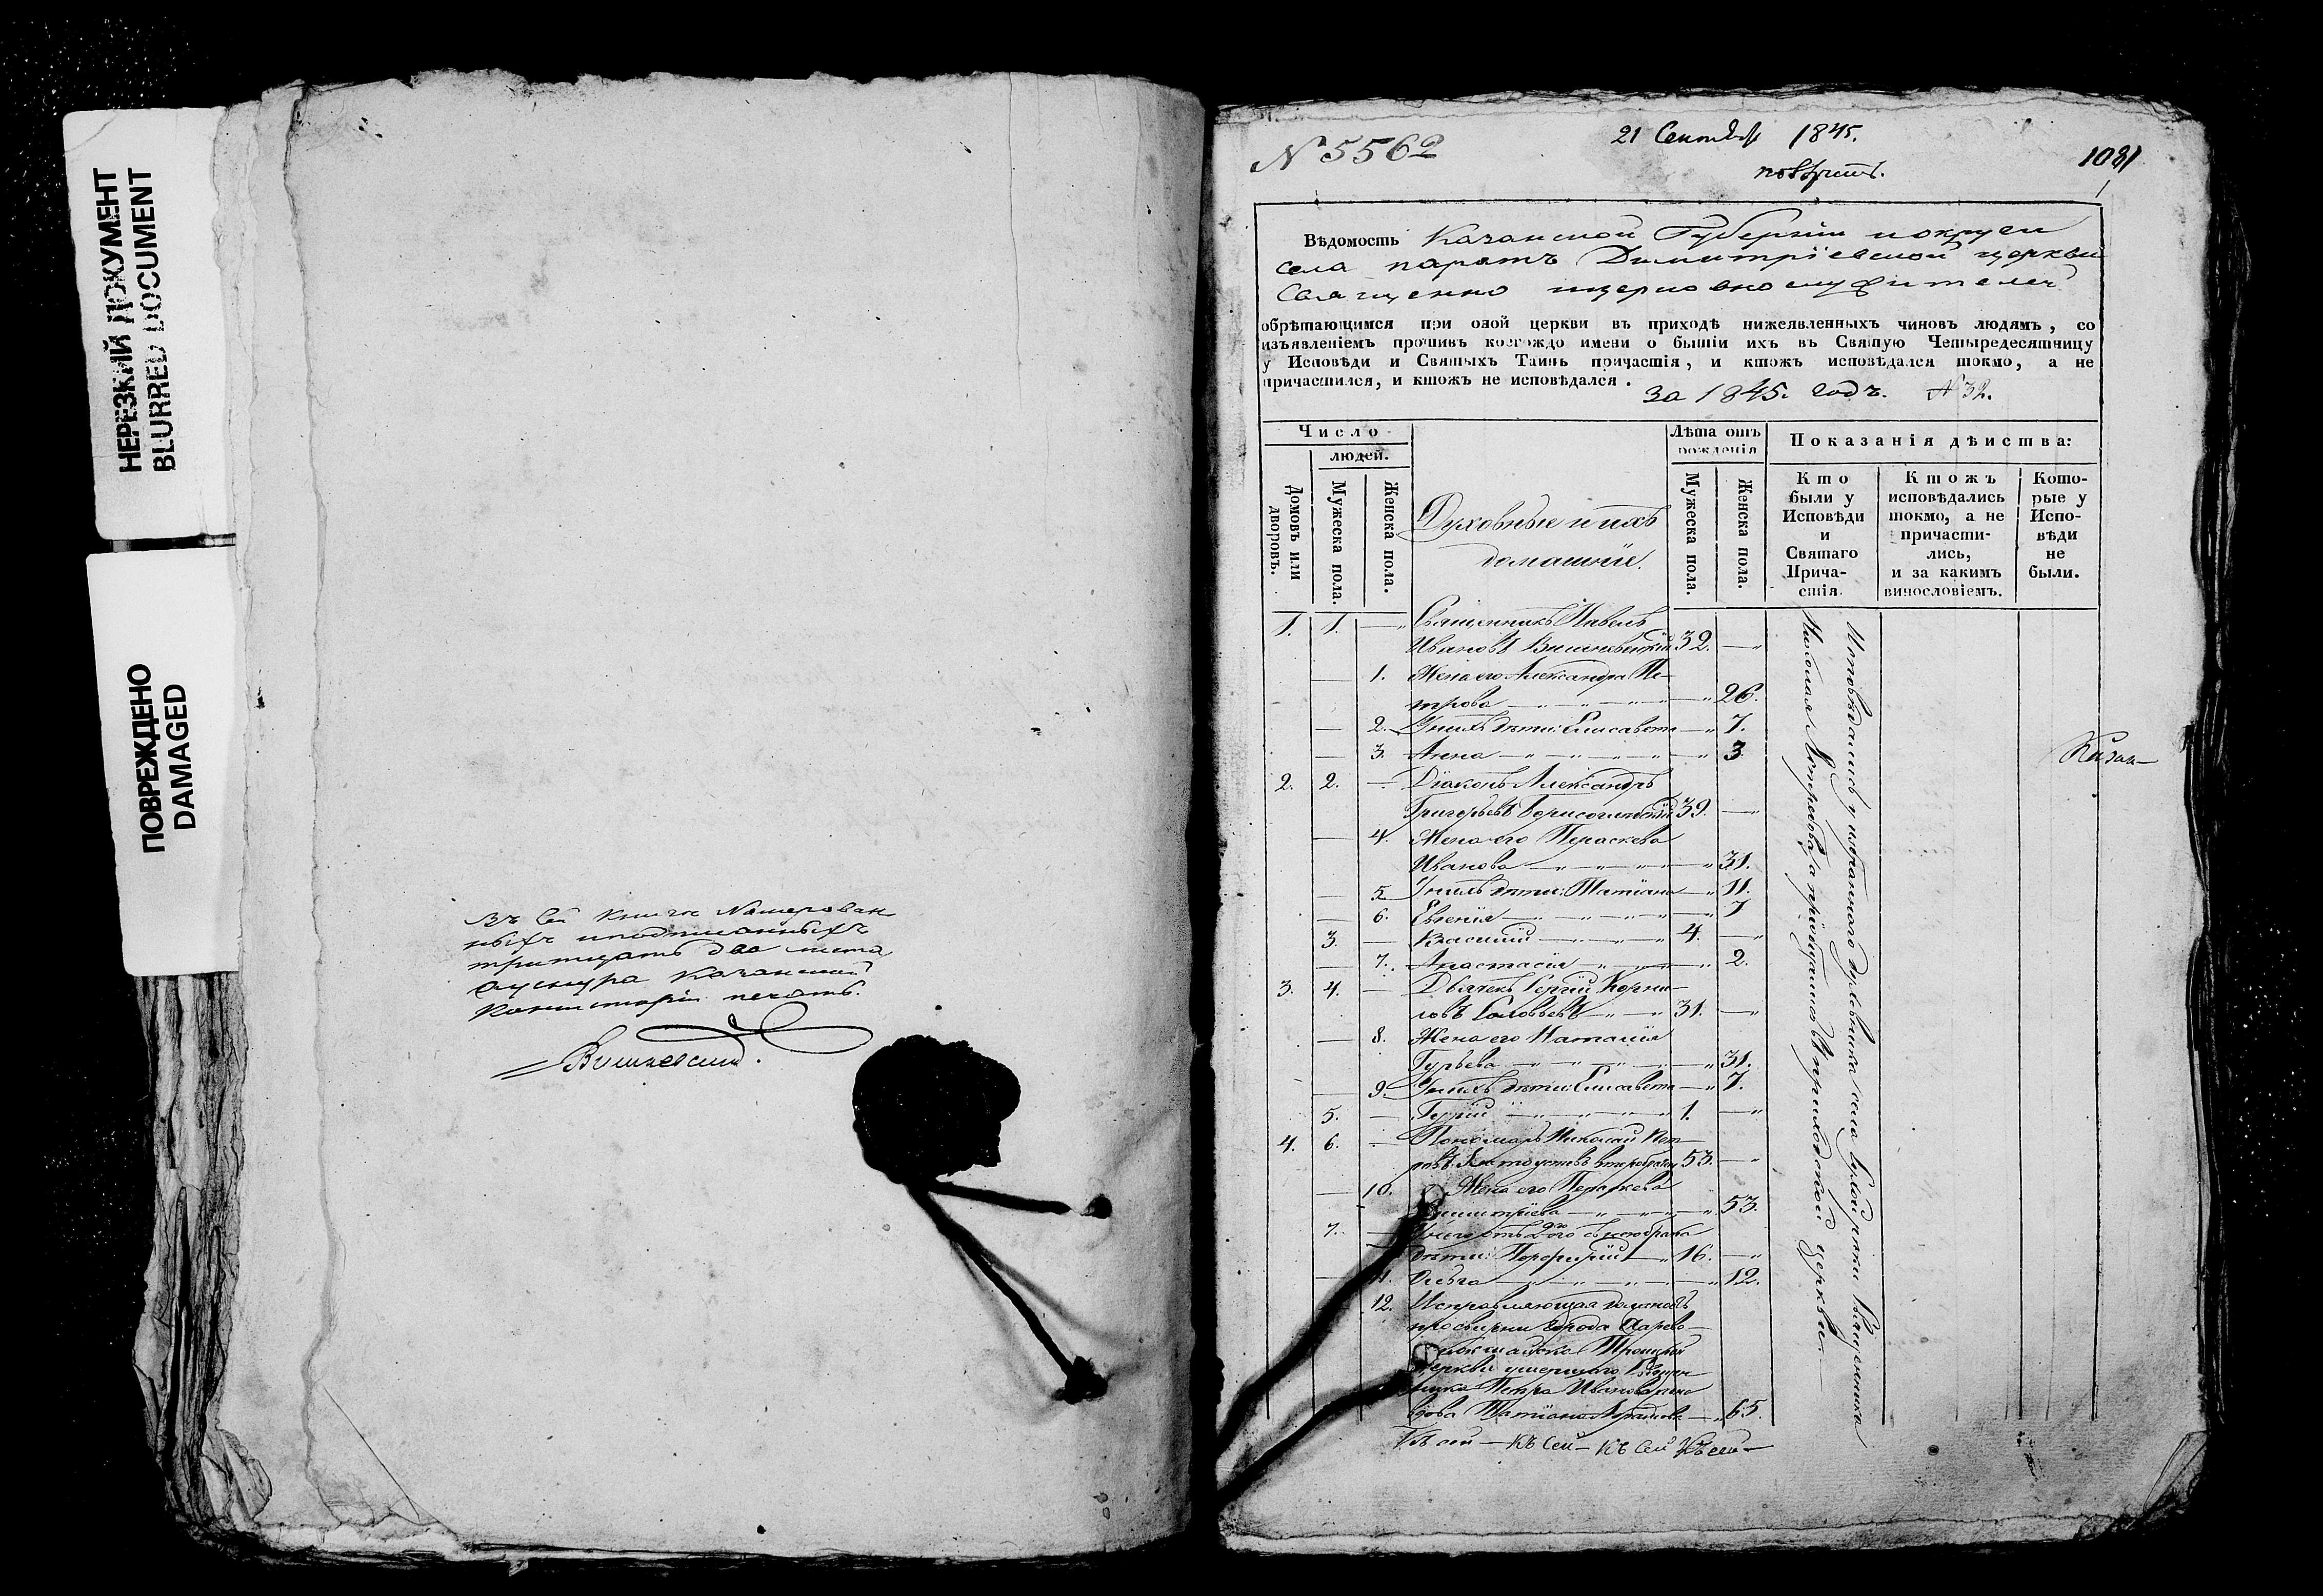 НЕРЕЗКИЙ ДОКУМЕНТ
BLURRED DOCUMENT
ПОВРЕЖДЕНО
DAMAGED
Въ сей книге номерован
ныхъ
тритцать два листа
Казанской
Консисторіи печать.
Вишневский.
N 5562
21 Сентября 1845.
1031
Вѣдомость Казанской Губерніи и округи
села Паратъ Димитріевской церкви
Священно и церковнослужителей
обрѣтающимся при оной церкви въ приходѣ нижеявленныхъ чиновъ людямъ, со
изъявленіемъ противъ коегождо имени о бытіи ихъ въ Святую Четыредесятницу
у Исповѣди и Святыхъ Таинъ причастія, и ктожъ исповѣдался токмо, а не
причастился, и ктожъ не исповѣдался.
за 1845. годъ. N 32.
Число
людей.
Домовъ или дворовъ.
Мужеска пола.
Женска пола.
Духовные и ихъ
домашніе.
Лѣта отъ
рожденія
Мужеска пола.
Женска пола.
Показанія дѣиства:
Кто
были у
Исповѣди
и
Святаго
Прича-
стія.
Ктожъ
исповѣдались
токмо, а не
причасти-
лись,
и за какимъ
винословіемъ.
Кото-
рые у
Испо-
вѣди
не
были.
1. 1. — Священникъ Павелъ
Ивановъ 32. —
— 1. Жена его Александра Пе-
трова — 26.
— 2. У нихъ дѣти: Елисавета — 7.
— 3. Анна — 3
2. 2. — Діаконъ Александръ
Григорьевъ Борисоглебскій 39. —
— 4. Жена его Параскева
Иванова — 31.
— 5. У нихъ дѣти: Татіана — 11.
— 6. Евгенія — 7
3. — Василий — 4. —
— 7. Анастасія — 2.
3. 4. — Дьячекъ Сергій Корни-
ловъ Соловьевъ — 31. —
— 8. Жена его Наталія
Гурьева — 31.
— 9. У нихъ дѣти: Елисавета — 7.
5. — Гурій — 1. —
4. 6. — Пономарь Николай Пет-
ровъ 53. —
— 10. Жена его Параскева
Димитріева — 53.
7. —
дѣти: Порфирій — 16. —
— 11. Ольга — 12.
12. Исправляющая должность
просвирни города Царево-
кокшайска Троицкой
церкви умершего Священ
ника Петра Иванова жена
вдова Татіана — 65.
Къ сей — Къ сей — Къ сей Къ сей —
Исповѣдались у избраннаго духовника села Священника
Николая а пріобщались въ приходской церкви.
Казан-